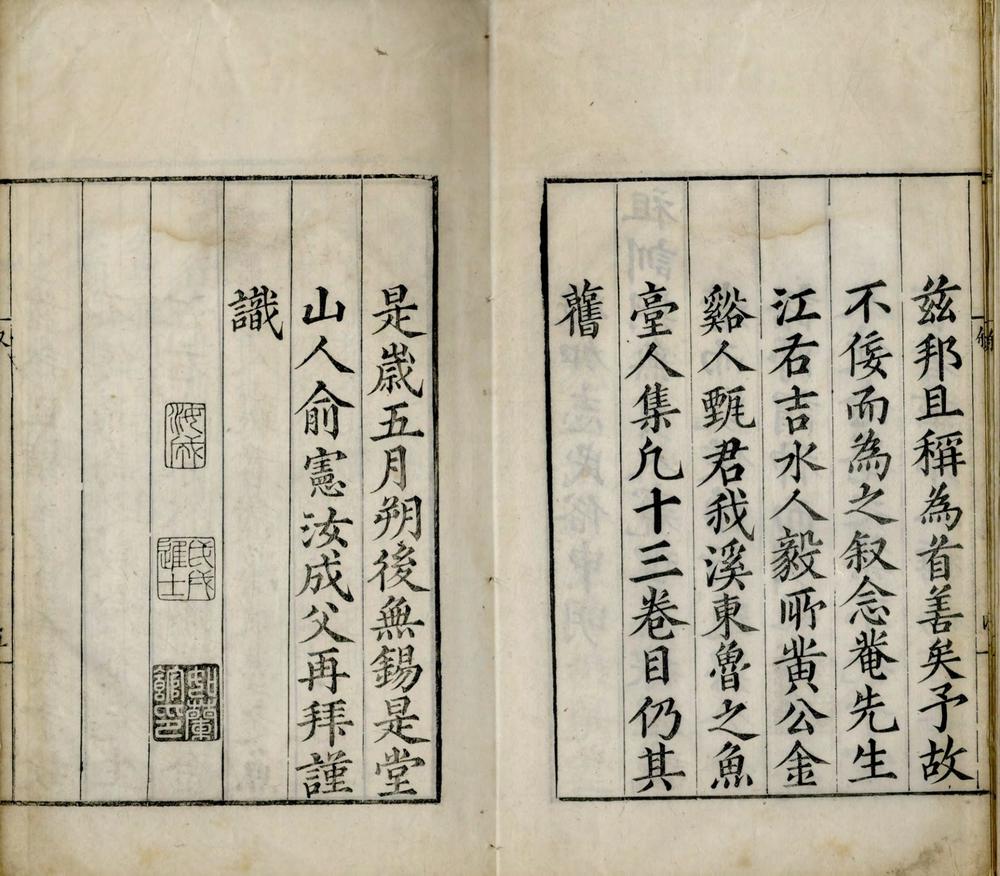 茲邦且稱為首善矣予故
不佞而為之叙念菴先生
江右吉水人毅所黄公金
谿人甄君我溪東魯之魚
臺人集凢十三卷目仍其
舊
是嵗五月朔後無錫是堂
山人俞憲汝成父再拜謹
識
汝成
戊戌
進士